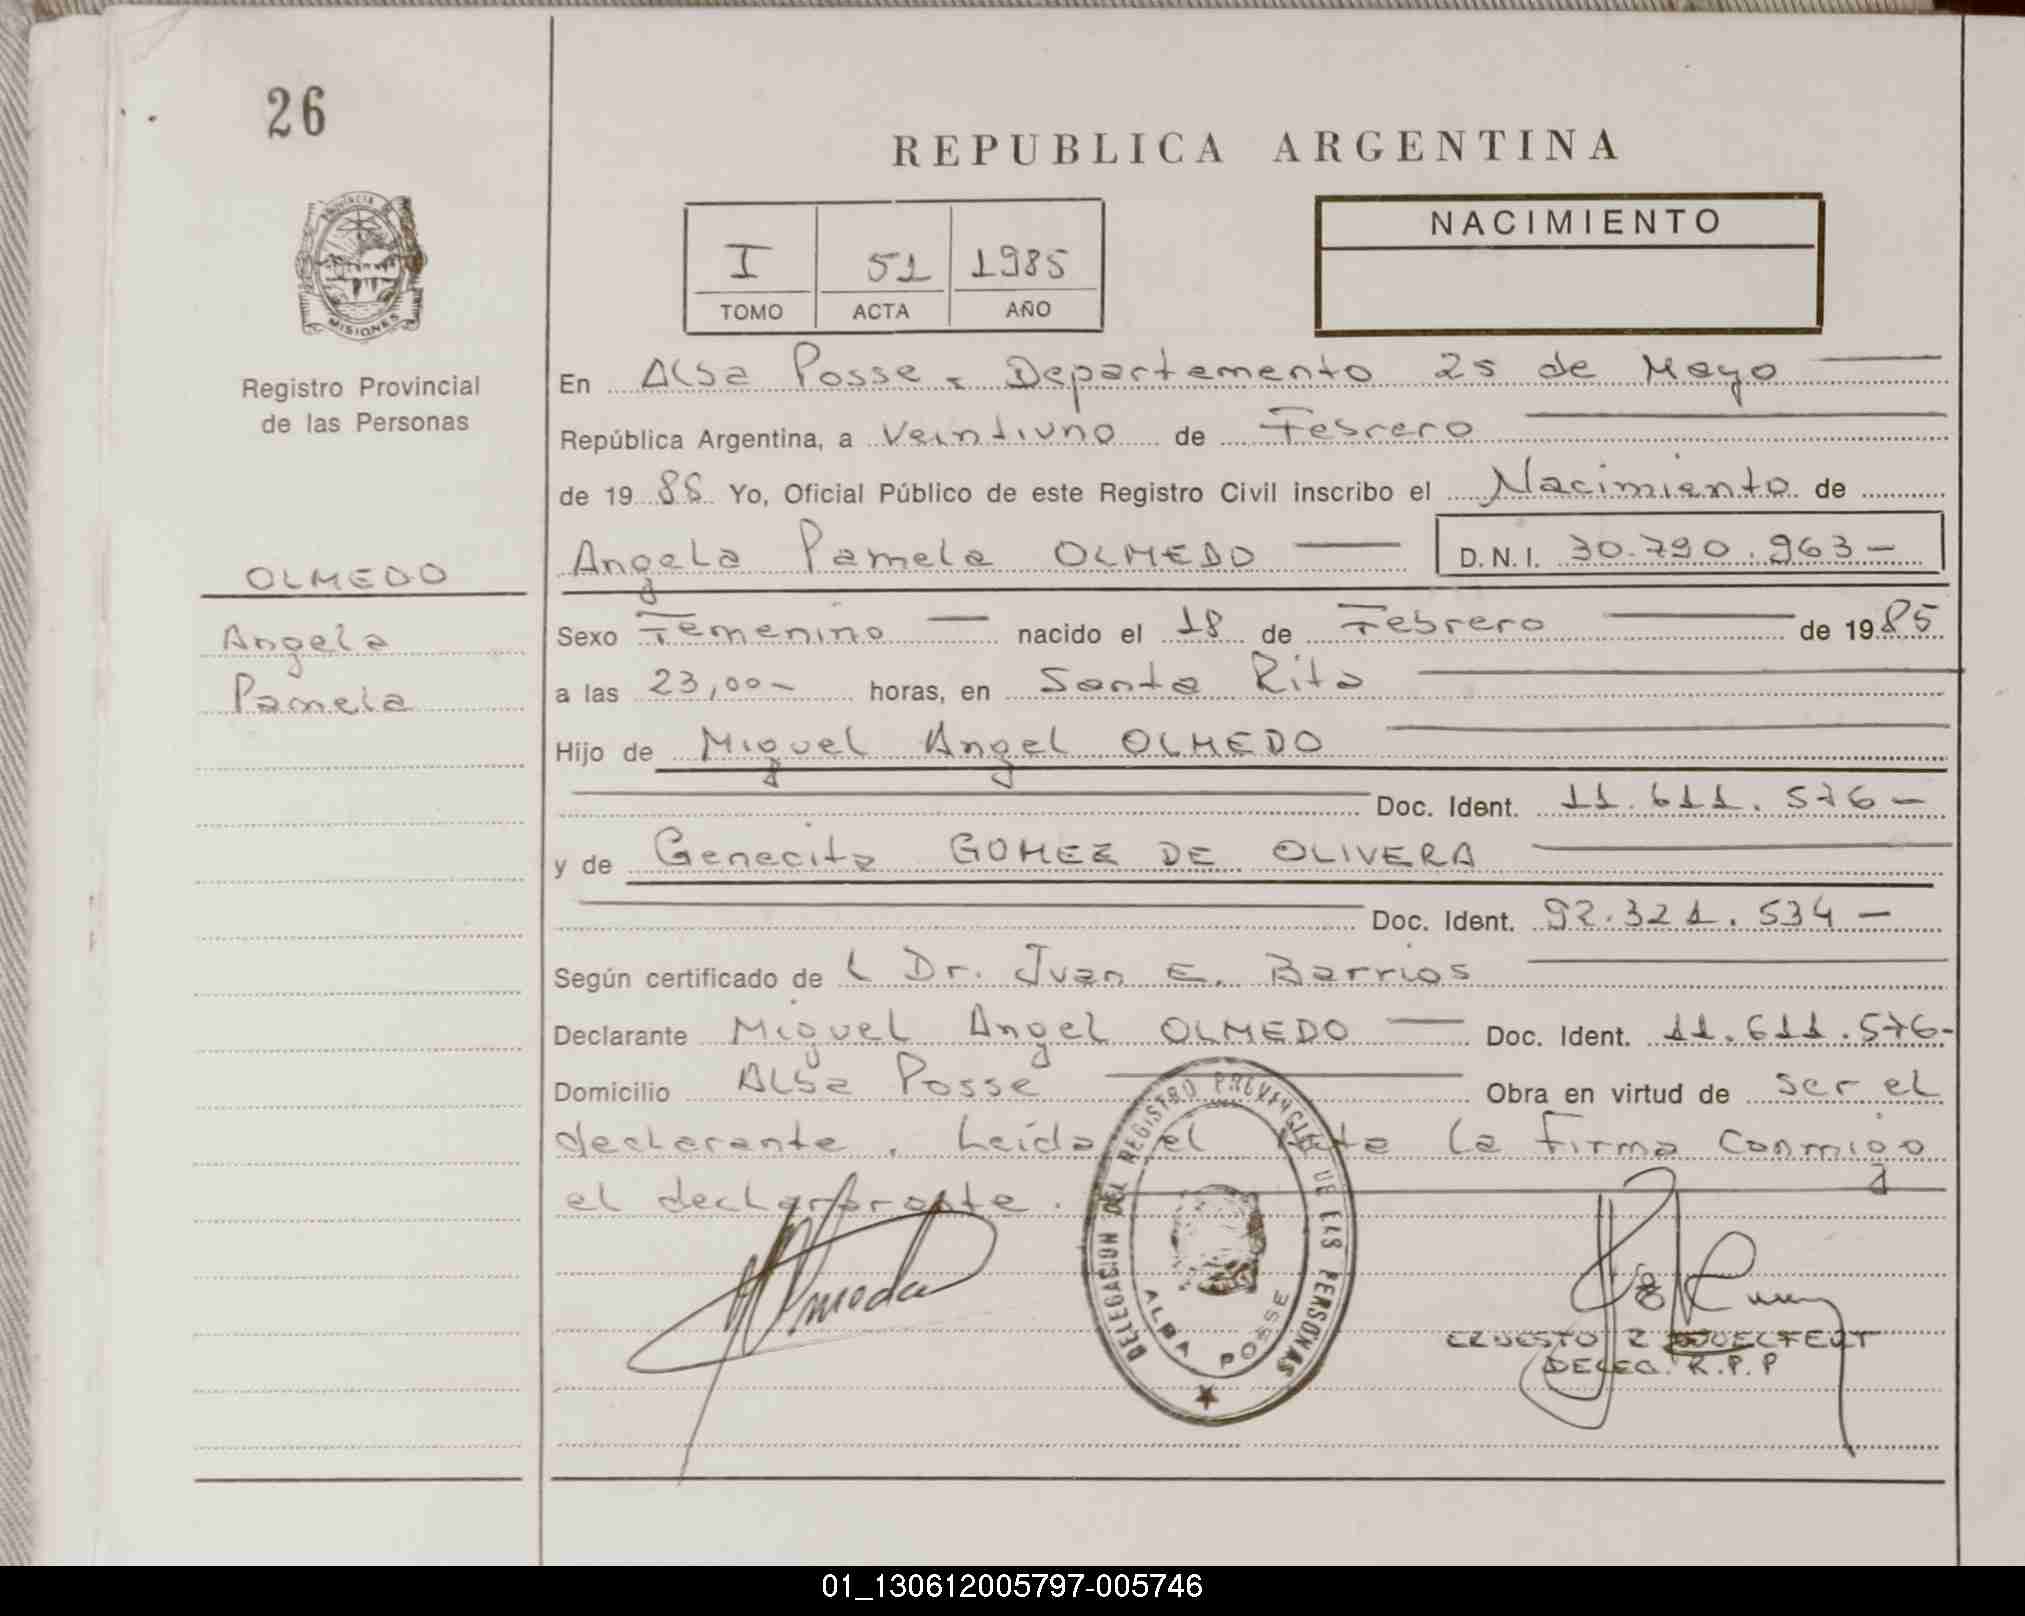 26
REPUBLICA ARGENTINA
PROVINCIA DE
MISIONES
I 51 1985
TOMO ACTA AÑO
NACIMIENTO
Registro Provincial
de las Personas
OLMEDO
Angela
Pamela
En Alba Posse - Departamento 25 de Mayo
República Argentina, a Veintiuno de Febrero
de 1985 Yo, Oficial Público de este Registro Civil inscribo el Nacimiento de
Angela Pamela OLMEDO D.N.I. 30.790.963-
Sexo Femenino nacido el 18 de Febrero de 1985
a las 23,00- horas, en Santa Rita
Hijo de Miguel Angel OLMEDO
Doc. Ident. 11.611.576-
y de Genecita GOMEZ DE OLIVERA
Doc. Ident. 92.321.534-
Según certificado de l Dr. Juan E. Barrios
Declarante Miguel Angel OLMEDO Doc. Ident. 11.611.576-
Domicilio Alba Posse Obra en virtud de ser el
declarante. Leída el Acta la firma conmigo
el declarante.
DELEGACION DEL REGISTRO PROVINCIAL DE LAS PERSONAS
ALBA POSSE
ERNESTO R
DELEG. R.P.P
01_130612005797-005746